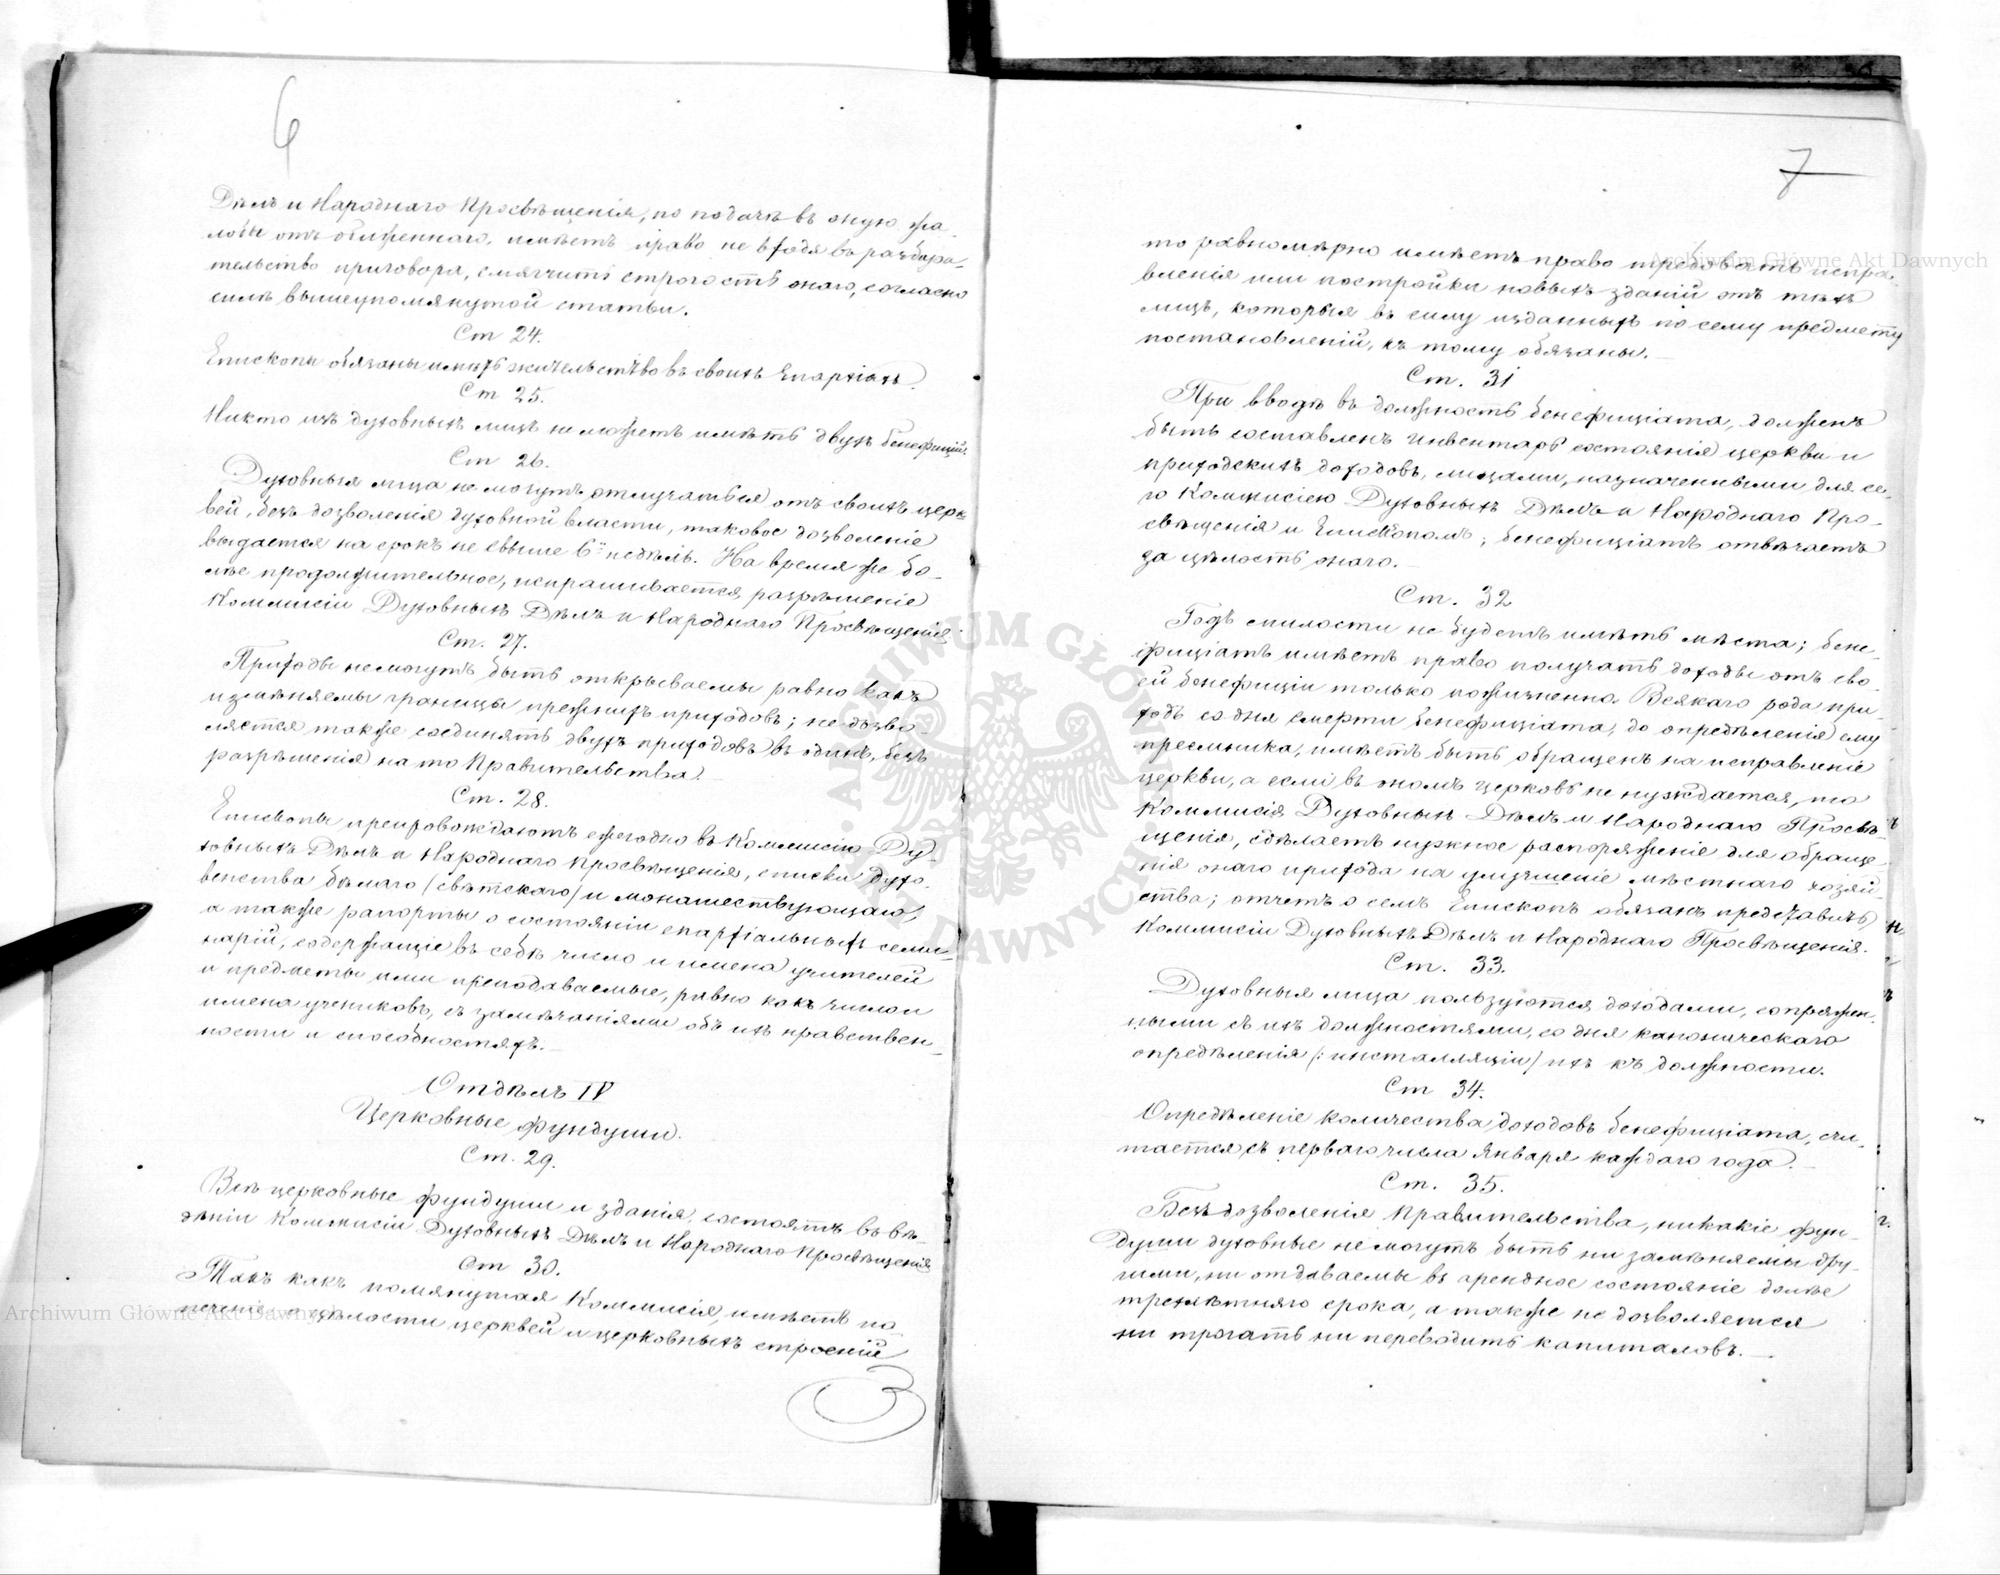 6
Дѣлъ и Народнаго Просвѣщенія, по подачѣ въ оную жа-
лобы отъ обиженнаго, имѣетъ право не входя въ разбира-
тельство приговора, смягчить строгость онаго, согласно
силѣ вышеупомянутой статьи.
Ст 24.
Епископы обязаны имѣть жительство въ своихъ Епархіяхъ.
Ст 25.
Никто изъ духовныхъ лицъ не можетъ имѣть двухъ бенефицій.
Ст 26.
Духовныя лица не могутъ отлучаться отъ своихъ церк
вей, безъ дозволенія духовной власти, таковое дозволеніе
выдается на срокъ не свыше 6ти недѣль. На время же бо-
лѣе продолжительное, испрашивается разрѣшеніе
Коммисіи Духовныхъ Дѣлъ и Народнаго Просвѣщенія.
Ст. 27.
Приходы не могутъ быть открываемы равно какъ
измѣняемы границы прежнихъ приходовъ; не дозво-
ляется также соединять двухъ приходовъ въ одинъ, безъ
разрѣшенія на то Правительства.
Ст. 28.
Епископы препровождаютъ ежегодно въ Коммисію Ду-
ховныхъ Дѣлъ и Народнаго Просвѣщенія, списки духо-
венства бѣлаго /свѣтскаго/ и монашествующаго,
а также рапорты о состояніи епархіальныхъ семи-
нарій, содержащіе въ себѣ число и имена учителей
и предметы ими преподаваемые, равно какъ число и
имена учениковъ, съ замѣчаніями объ ихъ нравствен-
ности и способностяхъ.
Отдѣлъ IV
Церковные фундуши.
Ст. 29.
Всѣ церковные фундуши и зданія, состоятъ въ вѣ-
дѣніи Коммисіи Духовныхъ Дѣлъ и Народнаго Просвѣщенія
Ст 30.
Такъ какъ помянутая Коммисія, имѣетъ по
печеніе о цѣлости церквей и церковныхъ строеній
7
то равномѣрно имѣетъ право требовать испра-
вленія или постройки новыхъ зданій отъ тѣхъ
лицъ, которыя въ силу изданныхъ по сему предмету
постановленій, къ тому обязаны.
Ст. 31
При вводѣ въ должность бенефиціата, долженъ
быть составленъ инвентарь состоянія церкви и
приходскихъ доходовъ, лицами, назначенными для се-
го Коммисіею Духовныхъ Дѣлъ и Народнаго Про-
свѣщенія и Епископомъ; бенефиціатъ отвѣчаетъ
за цѣлость онаго.
Ст. 32
Годъ милости не будетъ имѣть мѣста; бене-
фиціатъ имѣетъ право получать доходы отъ сво-
ей бенефиціи только пожизненно. Всякаго рода при-
ходъ со дня смерти бенефиціата, до опредѣленія ему
преемника, имѣетъ быть обращенъ на исправленіе
церкви, а если въ ономъ церковь не нуждается, то
Коммисія Духовныхъ Дѣлъ и Народнаго Просвѣ-
щенія, сдѣлаетъ нужное распоряженіе для обраще-
нія онаго прихода на улучшеніе мѣстнаго хозяй-
ства; отчетъ о семъ Епископъ обязанъ представить
Коммисіи Духовныхъ Дѣлъ и Народнаго Просвѣщенія.
Ст. 33.
Духовныя лица пользуются доходами, сопряжен-
ными съ ихъ должностями, со дня каноническаго
опредѣленія /: инсталляціи/ ихъ къ должности.
Ст 34.
Опредѣленіе количества доходовъ бенефиціата, счи-
тается съ перваго числа Января каждаго года.
Ст. 35.
Безъ дозволенія Правительства, никакіе фун-
души духовные не могутъ быть ни замѣняемы дру-
гими, ни отдаваемы въ арендное состояніе долѣе
трехлѣтняго срока, а также не дозволяется
ни трогать ни переводить капиталовъ.
Archiwum Główne Akt Dawnych
Archiwum Główne Akt Dawnych
ARCHIWUM GŁÓWNE AKT DAWNYCH